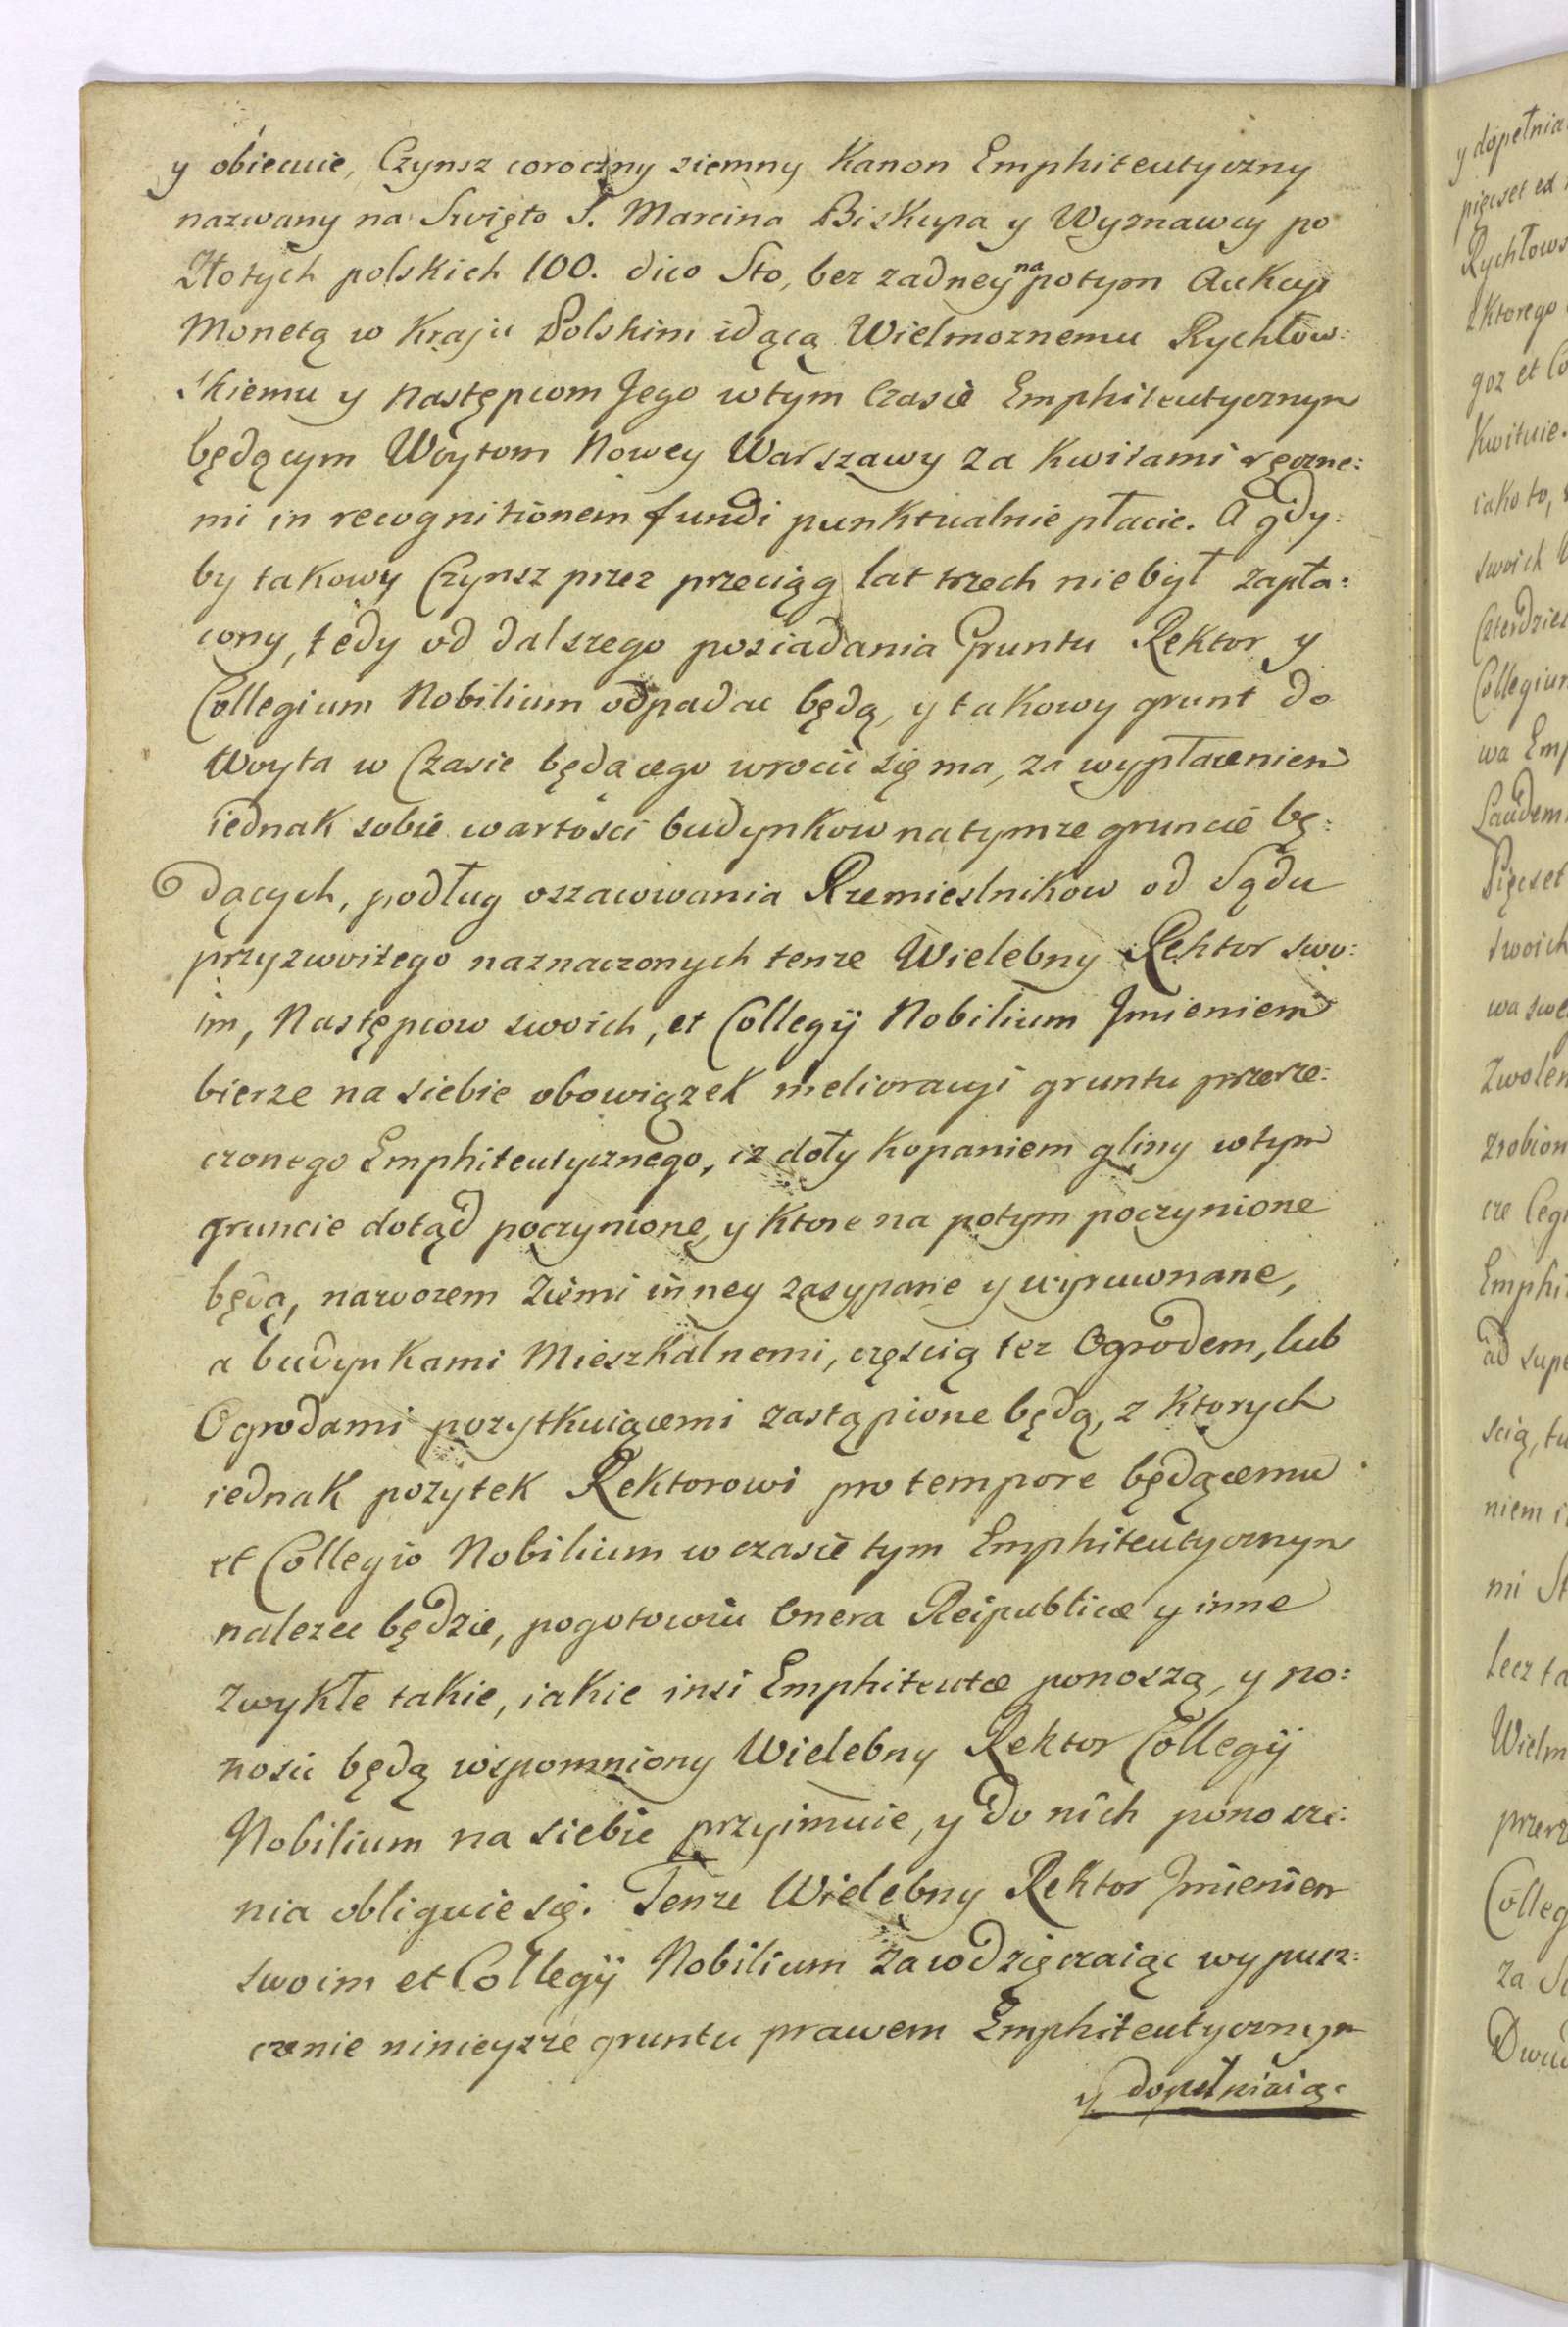 y obiecuie, Czynsz coroczny ziemny Kanon Emphiteutyczny
nazwany na Swięto S. Marcina Biskupa y Wyznawcy po
Złotych polskich 100. dico Sto, bez zadney na potym Aukcyi
Monetą w Kraju Polskim idącą Wielmoznemu Rychłow:
skiemu y Następcom Jego w tym Czasie Emphiteutycznym
będącym Woytom Nowey Warszawy za Kwitami ręczne:
mi in recognitionem fundi punktualnie płacic. A gdy:
by takowy Czynsz przez przeciąg lat trzech niebył zapła:
cony, tedy od dalszego posiadania Gruntu Rektor y
Collegium Nobilium odpadac będą, y takowy grunt do
Woyta w Czasie będącego wrocic się ma, za wypłaceniem
iednak sobie wartosci budynkow natymze gruncie bę:
dących, podług oszacowania Rzemieslnikow od Sądu
przyzwoitego naznaczonych tenze Wielebny Rektor swo:
im, Następcow swoich, et Collegij Nobilium Jmieniem
bierze na siebie obowiązek melioracyi gruntu przerze:
czonego Emphiteutycznego, iz doły kopaniem gliny w tym
gruncie dotąd poczynione, y ktore na potym poczynione
będą, nawozem ziemi inney zasypane y wyrownane,
a budynkami Mieszkalnemi, częscią tez Ogrodem, lub
Ogrodami pozytkuiącemi zastąpione będą, z ktorych
iednak pozytek Rektorowi pro tempore będącemu
et Collegio Nobilium w czasie tym Emphiteutycznym
nalezec będzie, pogotowiu Onera Reipublicæ y inne
zwykłe takie, iakie insi Emphiteutæ ponoszą, y po:
nosic będą wspomniony Wielebny Rektor Collegij
Nobilium na siebie przyimuie, y do nich ponosze:
nia obliguie się. Tenze Wielebny Rektor Jmieniem
swoim et Collegij Nobilium zawodzięczaiąc wypusz:
czenie ninieysze gruntu prawem Emphiteutycznym
y dopełniaiąc
y dopełnia
pięcset
Rychłows
z ktorego
goz et Co
Kwituie.
iako to,
swoich
Czterdzies
Collegium
wa Emp
Laudem
Pięcset
swoich
wa swe
Zwolen
zrobion
cze Ceg
Emphi
ad supe
scią, tu
niem i
mi St
lecz ta
Wielm
przerz
Colleg
za S
Dwud